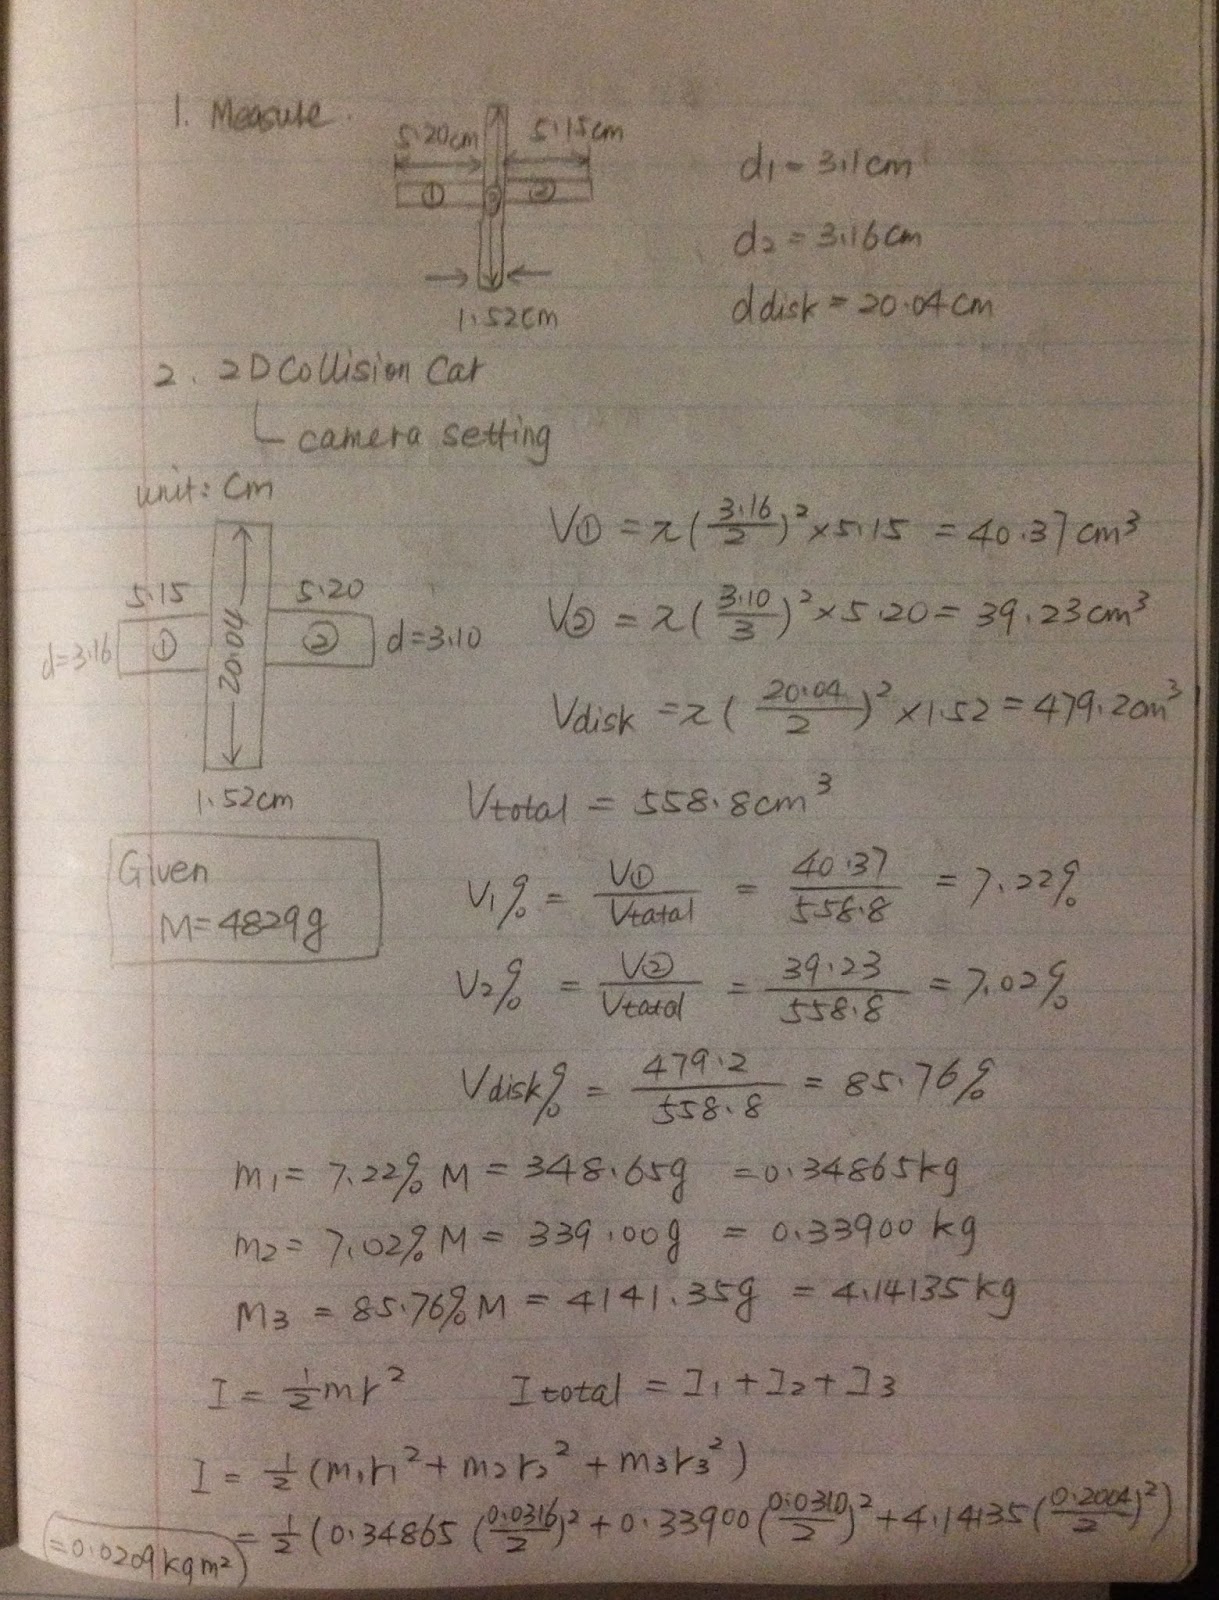 1. Measure.
5.20cm 5.15cm
① ③ ②
1.52cm
d1 = 3.1cm
d2 = 3.16cm
d disk = 20.04cm
2. 2D Collision Car
camera setting
unit: cm
5.15 5.20
d=3.16 ① 20.04 ② d=3.10
1.52cm
V① = π(3.16/2)² × 5.15 = 40.37cm³
V② = π(3.10/3)² × 5.20 = 39.23cm³
Vdisk = π(20.04/2)² × 1.52 = 479.2cm³
Vtotal = 558.8cm³
Given
M = 4829g
V1% = V①/Vtatal = 40.37/558.8 = 7.22%
V2% = V②/Vtatal = 39.23/558.8 = 7.02%
Vdisk% = 479.2/558.8 = 85.76%
m1 = 7.22% M = 348.65g = 0.34865kg
m2 = 7.02% M = 339.00g = 0.33900 kg
m3 = 85.76% M = 4141.35g = 4.14135kg
I = ½mr² Itotal = I1 + I2 + I3
I = ½(m1r1² + m2r2² + m3r3²)
= ½(0.34865(0.0316/2)² + 0.33900(0.0310/2)² + 4.14135(0.2004/2)²)
= 0.0209kgm²